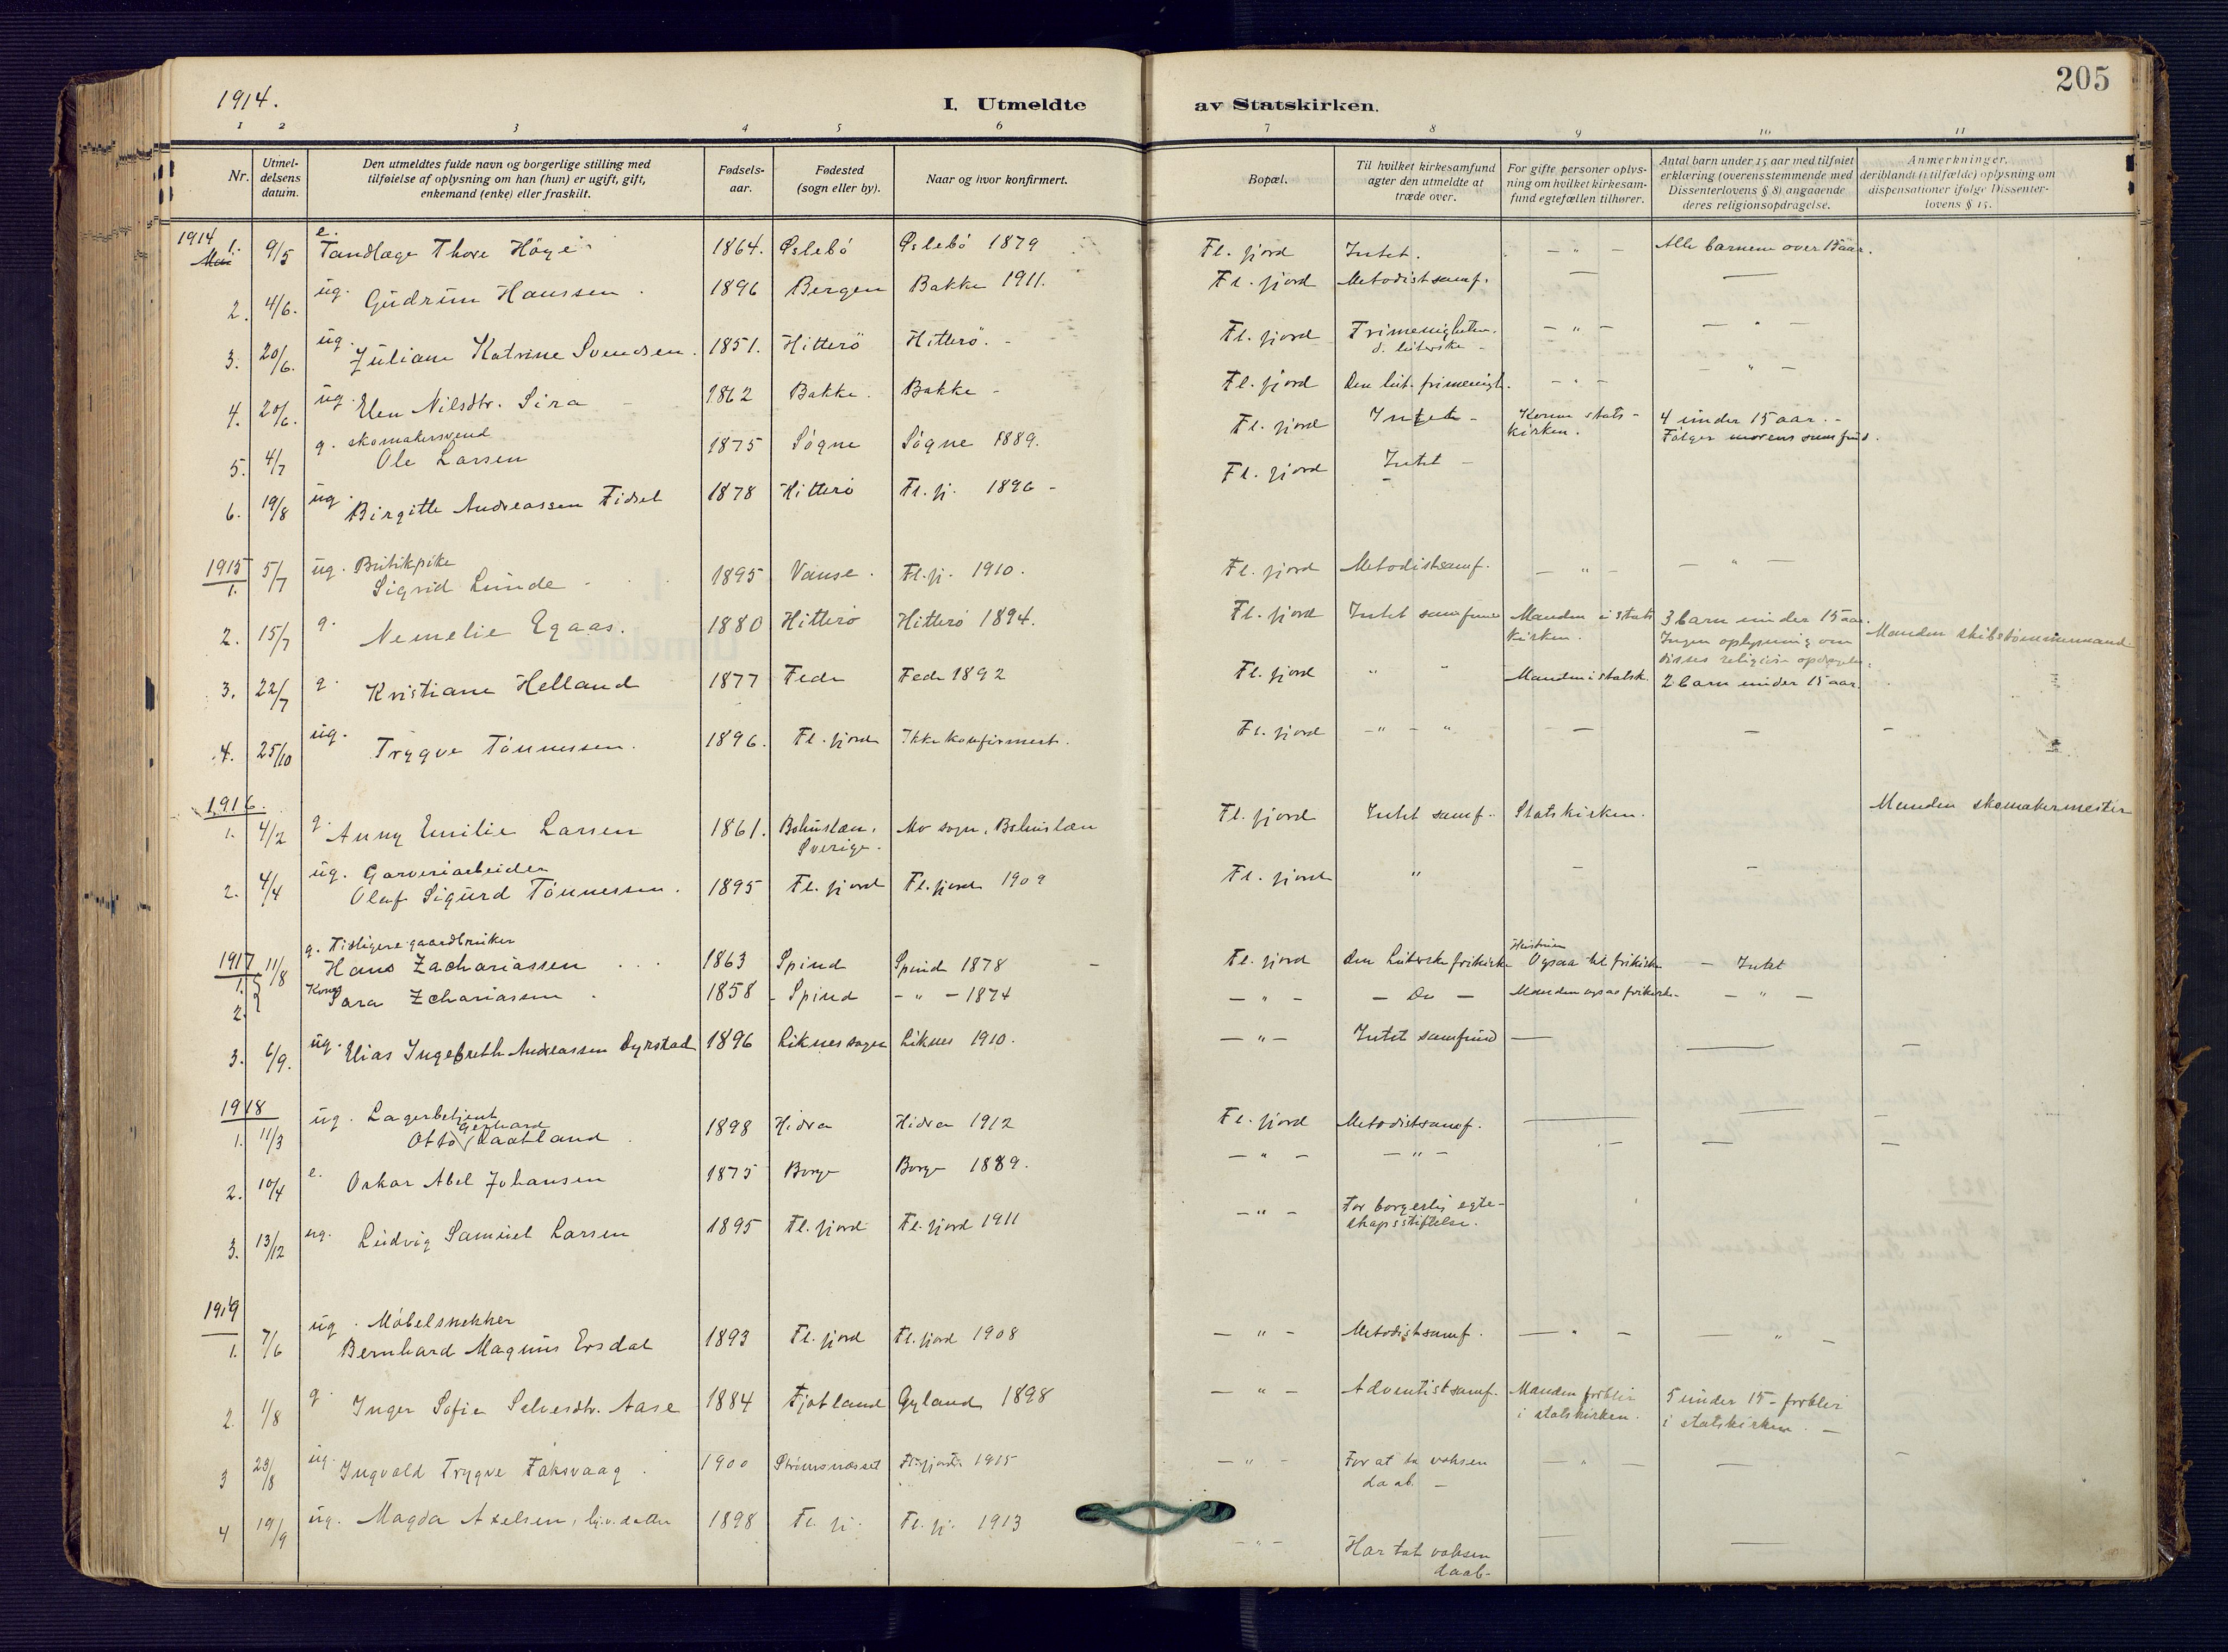 1914.
I. Utmeldte av Statskirken.
205
1 2 3 4 5 6 7 8 9 10 11
Nr.
Utmel-
delsens
datum.
Den utmeldtes fulde navn og borgerlige stilling med
tilføielse af oplysning om han (hun) er ugift, gift,
enkemand (enke) eller fraskilt.
Fødsels-
aar.
Fødested
(sogn eller by).
Naar og hvor konfirmert.
Bopæl.
Til hvilket kirkesamfund
agter den utmeldte at
træde over.
For gifte personer oplys-
ning om hvilket kirkesam-
fund egtefællen tilhører.
Antal barn under 15 aar med tilføiet
erklæring (overensstemmende med
Dissenterlovens § 8) angaaende
deres religionsopdragelse.
Anmerkninger,
deriblandt (i tilfælde) oplysning om
dispensationer ifølge Dissenter-
lovens § 15.
1914
1. 9/5 e. Tandlæge Thore Höye 1864. Øslebö Øslebö 1879 Fl. fjord Intet. - " - Alle barnene over 15 aar.
2. 4/6. ug. Gudrun Hanssen. 1896 Bergen Bakke 1911. Fl. fjord Metodistsamf. — —
3. 20/6. ug. Juliane Katrine Svendsen. 1851. Hitterö Hitterö. - Fl. fjord Frimenigheten. d. luterske - - " - - " -
4. 20/6. ug. Elen Nilsdtr. Sira - 1862 Bakke. Bakke - Fl. fjord Den lut. frimenigh. - " - - " -
5. 4/7 g. skomakersvend
Ole Larsen 1875 Sögne Sögne 1889. Fl. fjord Intet - Konen stats-
kirken. 4 under 15 aar. -
Fölger morens samfund.
6. 19/8 ug. Birgitte Andreassen Fidsel 1878 Hitterö Fl. fj. 1896 - Fl. fjord Intet -
1915
1. 5/7 ug. Butikpike
Sigrid Lunde - 1895 Vanse. Fl. fj. 1910. Fl. fjord Metodistsamf. - " - - " -
2. 15/7 g. Nemelie Egaas. 1880 Hitterö Hitterö 1894. Fl. fjord Intet samfund Manden i stats
kirken. 3 barn under 15 aar.
Ingen oplysning om
disses religiöse Manden skibstömmermand
3. 22/7 g. Kristiane Helland 1877 Feda Feda 1892 Fl. fjord " " Manden i statsk. 2 barn under 15 aar.
4. 25/10 ug. Trygve Tönnessen. 1896. Fl. fjord Ikke konfirmert. Fl. fjord - " - " — — -
1916.
1. 4/2 g. Anny Emilie Larsen 1861. Bohuslæn,
Sverige. Mo sogn, Bohuslæn Fl. fjord Intet samf. Statskirken. Manden skomakermester
2. 4/4 ug. Garveriarbeider
Olaf Sigurd Tönnessen. 1895 Fl. fjord Fl. fjord 1909 Fl. fjord " - -
1917
1. 11/8 g. Tidligere gaardbruker
Hans Zachariassen 1863 Spind Spind 1878 - Fl. fjord Den Luterske frikirke Hustruen
Ogsaa til frikirke - Intet
2. Konen Sara Zchariassen. 1858 - Spind - " - 1874 - " - - Do - Manden ogsaa frikirke - - " -
3. 6/9. ug. Elias Ingebreth Andreassen Dyrstad 1896 Liknes sogn Liknes 1910. - " - Intet samfund — — -
1918
1. 11/3 ug. Lagerbetjent
Gerhard
Otto Laatland. 1898 Hidra Hidra 1912 Fl. fjord Metodistsamf. — — -
2. 10/4 e. Oskar Abel Johansen 1875 Borge Borge 1889. - " - - " - - — -
3. 13/12 ug. Ludvig Samuel Larsen 1895 Fl. fjord Fl. fjord 1911 - " - For borgerlig egte-
skapsstiftelse.
1919
1. 7/6 ug. Möbelsnekker
Bernhard Magnus Ersdal 1893 Fl. fjord Fl. fjord 1908 - " - Metodistsamf. - " - - " -
2. 1/8 g. Inger Sofie Salvesdtr. Aase 1884 Fjotland Gyland 1898 - " - Adventistsamf. Manden forblir
i statskirken. 5 under 15 - forblir
i statskirken. -
3 23/8 ug. Ingvald Trygve Faksvaag. 1900 Strömsnæsset Fl. fjord 1915 - " - For at ta voksen
daab. - - " - — -
4 19/9 ug. Magda Axelsen, 1898 Fl. fj. Fl. fj. 1913 - " - Har tat voksen
daab- — —